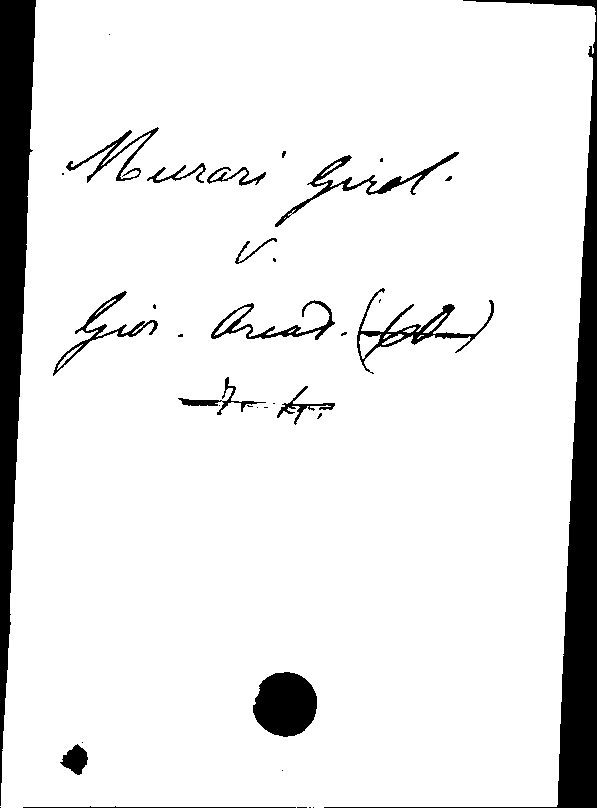 Murari Girol.
v.
Gior. Arcad. (